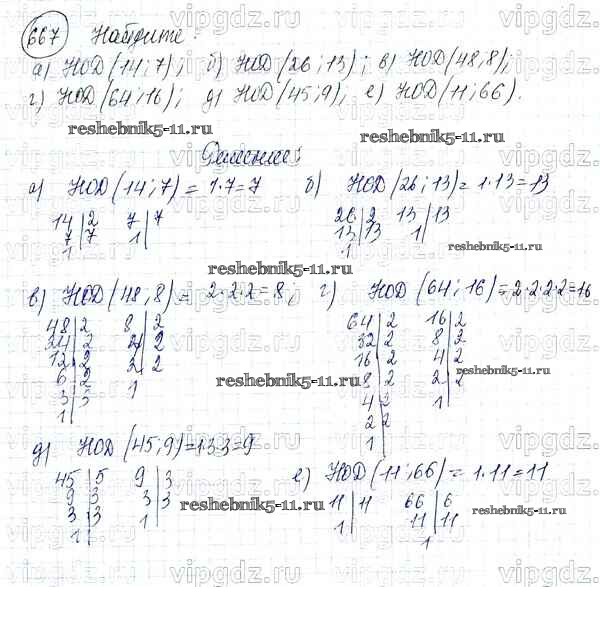 vipgdz.ru vipgdz.ru
667 Найдите:
а) НОД(14;7); б) НОД(26;13); в) НОД(48,8);
г) НОД(64;16); д) НОД(45;9); е) НОД(11;66).
reshebnik5-11.ru reshebnik5-11.ru
Решение:
vipgdz.ru vipgdz.ru
а) НОД(14;7) = 1·7=7 б) НОД(26;13)= 1·13=13
14|2 7|7 26|2 13|13
7|7 1| 13|13 1|
1| 1|
reshebnik5-11.ru
reshebnik5-11.ru
в) НОД(48,8) = 2·2·2=8; г) НОД(64;16)=2·2·2·2=16
48|2 8|2 64|2 16|2
24|2 4|2 32|2 8|2
12|2 2|2 16|2 4|2
6|2 1 8|2 2|2
3|3 4|2 1|
1| 2|2
1|
reshebnik5-11.ru
reshebnik5-11.ru
vipgdz.ru vipgdz.ru
д) НОД(45;9)=1·3·3=9
45|5 9|3
9|3 3|3
3|3 1|
1|
е) НОД(11;66)= 1·11=11
11|11 66|6
1| 11|11
1
reshebnik5-11.ru reshebnik5-11.ru
vipgdz.ru vipgdz.ru